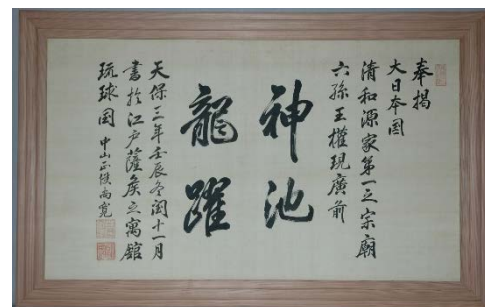 奉揭
大日本國
清和源家第一之宗廟
六孫王權現廣前
神池
龍躍
天保三年壬辰冬閏十一月
書於江戸薩矦之寓館
琉球国 中山正儀尚寬